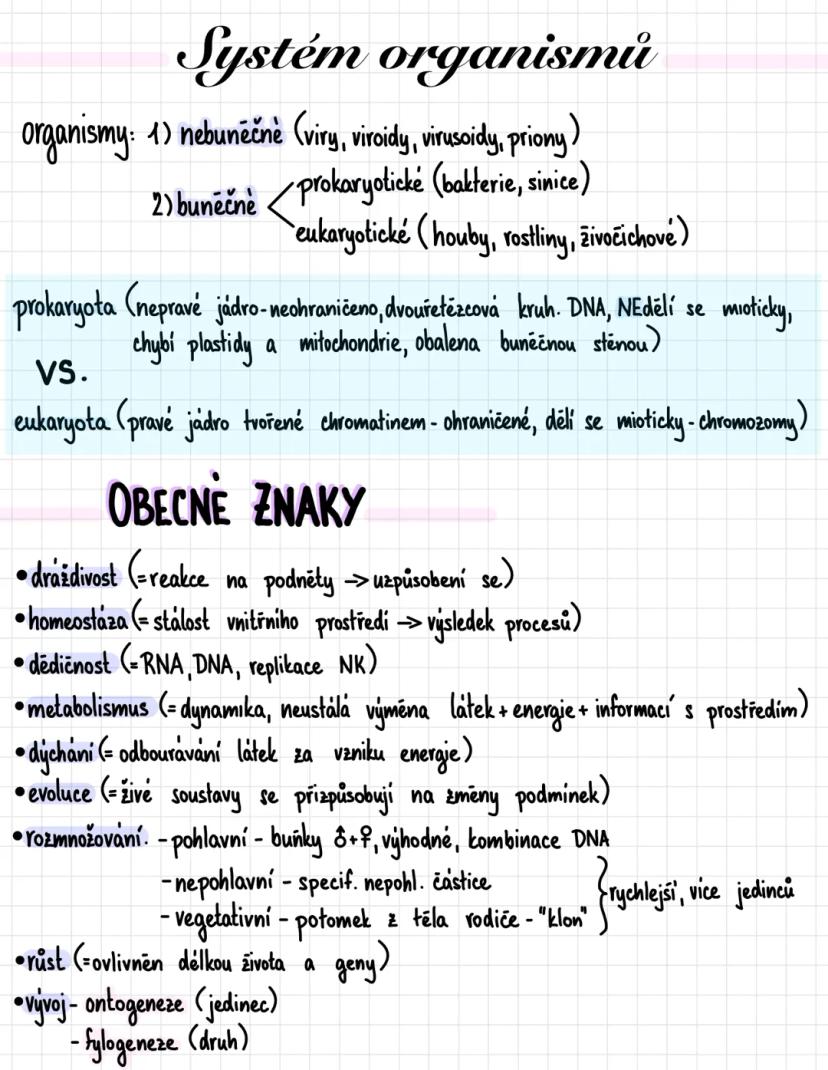 Systém organismů
organismy: 1) nebuněčné (viry, viroidy, virusoidy, priony)
2) buněčné < prokaryotické (bakterie, sinice)
eukaryotické (houby, rostliny, živočichové)
prokaryota (nepravé jádro-neohraničeno, dvouřetězcová kruh. DNA, NEdělí se mioticky,
chybí plastidy a mitochondrie, obalena buněčnou stěnou)
VS.
eukaryota (pravé jádro tvořené chromatinem - ohraničené, dělí se mioticky - chromozomy)
OBECNÉ ZNAKY
•dráždivost (=reakce na podněty → uzpůsobení se)
•homeostáza (= stálost vnitřního prostředí → výsledek procesů)
•dědičnost (=RNA, DNA, replikace NK)
•metabolismus (=dynamika, neustálá výměna látek + energie + informací s prostředím)
•dýchání (= odbourávání látek za vzniku energie)
•evoluce (=živé soustavy se přizpůsobují na změny podmínek)
•rozmnožování. - pohlavní - buňky ♂+♀, výhodné, kombinace DNA
- nepohlavní - specif. nepohl. částice
} rychlejší, více jedinců
- vegetativní - potomek z těla rodiče - "klon"
•růst (=ovlivněn délkou života a geny)
•vývoj - ontogeneze (jedinec)
- fylogeneze (druh)